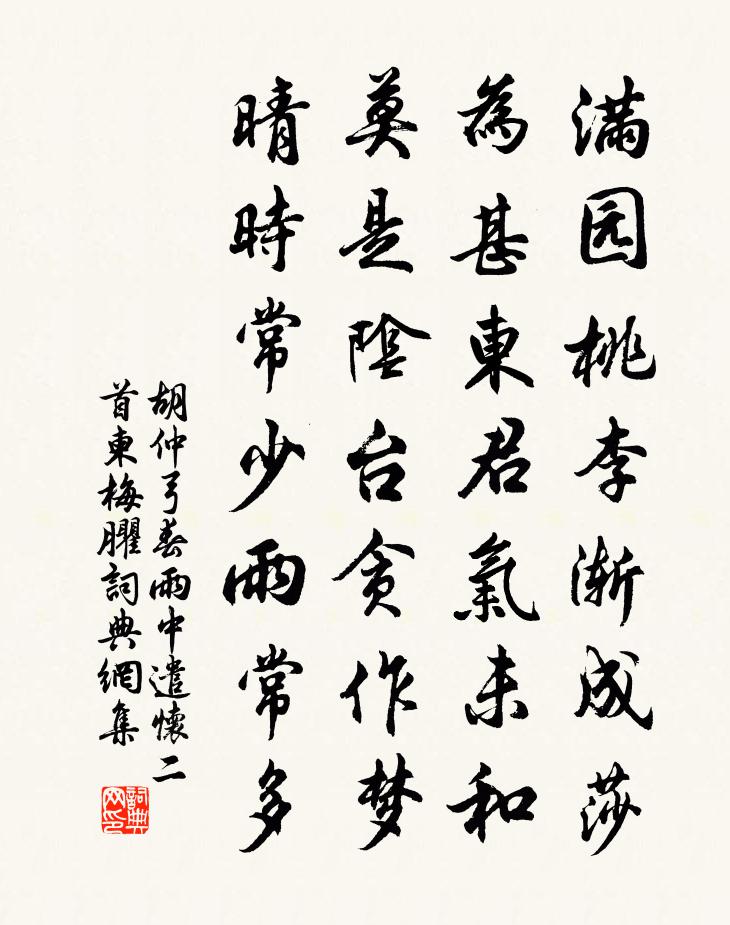 满园桃李渐成莎
為甚東君氣未和
莫是陰台贪作梦
晴時常少雨常多
胡仲弓春雨中遣懷二
首東梅臞詞典網集
詞典网印